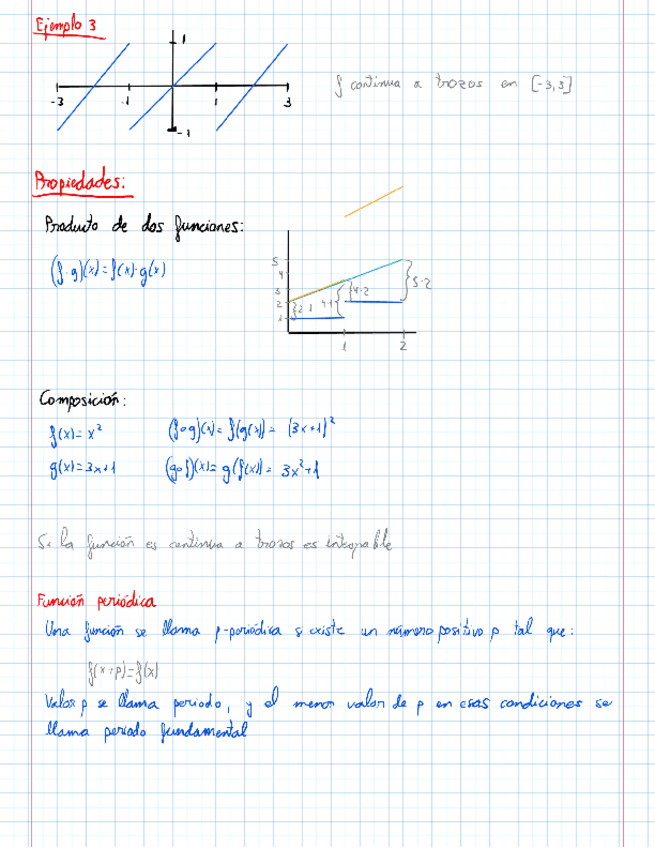 Ejemplo 3
1
-3 -1 1 3
-1
f continua a trozos en [-3,3]
Propiedades:
Producto de dos funciones:
(f·g)(x)=f(x)·g(x)
5
4
3
2
1
2·1 4·1 4·2 5·2
1 2
Composición:
f(x)=x² (f∘g)(x)=f(g(x))= (3x+1)²
g(x)=3x+1 (g∘f)(x)=g(f(x))= 3x²+1
Si la función es continua a trozos es integrable
Función periódica
Una función se llama p-periódica si existe un número positivo p tal que:
f(x+p)=f(x)
Valor p se llama periodo, y el menor valor de p en esas condiciones se
llama periodo fundamental